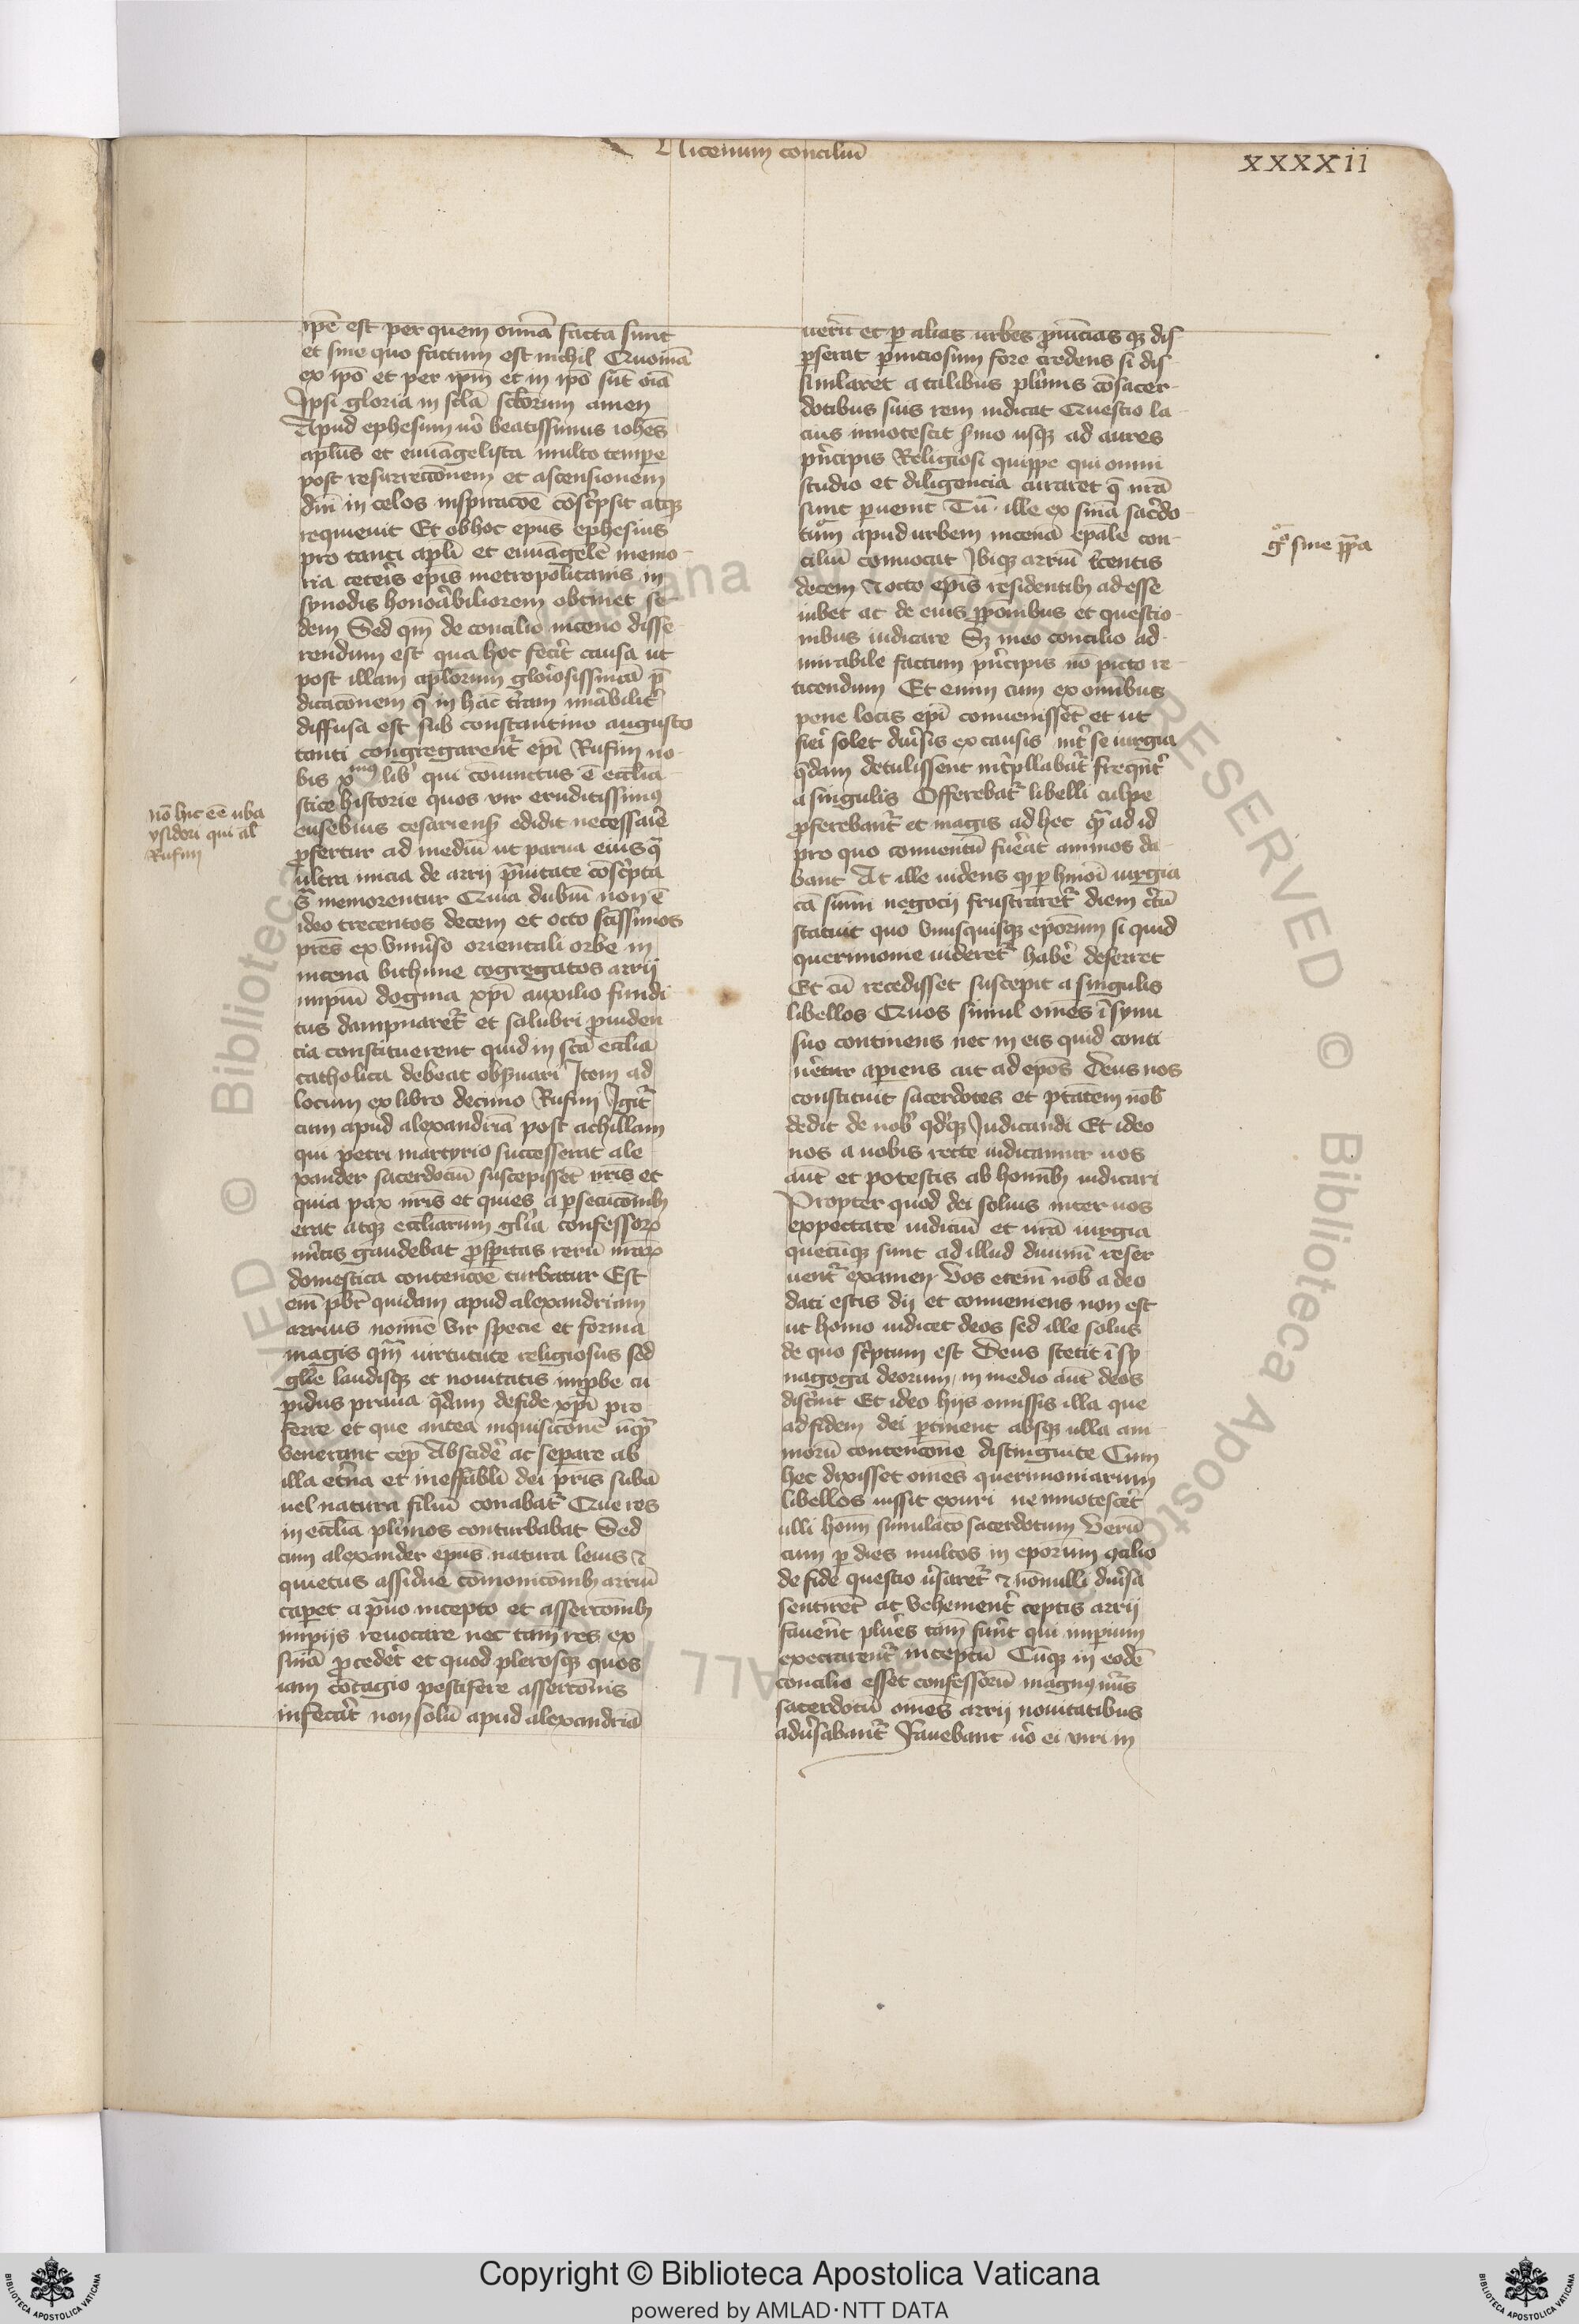 Nicenum conciliū
xxxxii
ip̄e est per quem om̄ia facta sunt
et sine quo factum est nichil Quoniā
ex ip̄o et per ip̄m et in ip̄o sūt oīa
Ipsi gloria in scl̄a scl̄orum amen
Apud ephesum uo beatissimus ioh̄es
apl̄us et euuāgelista multo tempe
post resurreccōnem et ascensionem
dn̄i in celos inspiracōe cōsc̄psit atqȝ
requieuit Et ob hoc ep̄us ephesius
pro tanti apl̄i et euuāgele memo-
ria ceteris ep̄is metropolitanis in
synodis honorabiliorem obtinet se-
dem Sed qm̄ de concilio niceno disse-
rendum est qua hoc fecit causa ut
post illam apl̄orum gloriosissimā p̄-
dicacōnem q̄ in hāc t̄ram mirabilit̄
diffusa est sub constantino augusto
tanti congregarent̄ ep̄i Rufini no-
bis xmus lib' qui cōiunctus ē eccl̄ia-
stice historie quos vir eruditissimꝯ
eusebius cesariens̄ edidit necessarie
ꝓfertur ad mediū ut parua eius q̄
ultra inicia de arrij prauitate cōsc̄pta
s̄ memorentur Quia dubiū non ē
ideo trecentos decem et octo sc̄issimos
pr̄es ex vniuerso orientali orbe in
nicena bithinie cogregatos arrij
impiū dogma xp̄i auxilio fundi-
tus dampnaret̄ et salubri ꝓuiden-
cia constituerent quid in sc̄a eccl̄ia
catholica debeat obseruari Item ad
locum ex libro decimo Rufini Igit̄
cum apud alexandriā post achillam
qui petri martyrio successerat ale-
xander sacerdociū suscepisset nr̄is et
quia pax nr̄is et quies a ꝑsecucōnibȝ
erat atqȝ eccl̄iarum gl̄ia confessorꝝ
mēritis gaudebat ꝓsperitas rerū nr̄arꝝ
domestica contencōe turbatur Est
eni pb̄r quidam apud alexandriam
arrius nomīe vir specie et forma
magis qm̄ uirtutute religiosus sed
gl̄ie laudisqȝ et nouitatis improbe cu-
pidus praua q̄dam de fide xp̄i pro-
ferre et que antea inquisicōne nūqȝ
venerant cepit Abscidere ac separe ab
illa et̄na et ineffabili dei pr̄is subā
uel natura filiū conabat̄ Que res
in eccl̄ia plurimos conturbabat Sed
cum alexander ep̄us natura lenis ⁊
quietus assidue cōmonicōnibȝ arriū
caperet a prauo incepto et assercōnibȝ
impijs reuocare nec tam res ex
sn̄ia ꝓcederet et quod plerosqȝ quos
iam cōtagio pestifere assercōnis
infecerat non solū apud alexandriā
nō hic eē uba
ysidori qui al'
Rufini
uerū et ꝑ alias urbes ꝓuīcias qȝ dis-
perserat ꝑniciosum fore credens si dis-
simlaret a talibus plurimis cōsacer-
dotibus suis rem indicat Questio la-
cius innotescit sermo usqȝ ad aures
pr̄ncipis Religiosi quippe qui omni
studio et diligencia curaret q̄ nr̄a
sunt ꝑuenit Tū ille ex sn̄ia sac̄do-
tum apud urbem nicenā epāle con-
ciliū conuocat Ibiqȝ arriū t̄centis
decem ⁊ octo ep̄is residentibȝ ad esse
iubet ac de eius ꝓpōnibus et questio-
nibus iudicare Sȝ in eo concilio ad-
mirabile factum pr̄ncipis nō puto re-
ticendum Et enim cum ex omībus
pene locis ep̄i conuenissēt et ut
fieri solet diu'sis ex causis int̄ se iurgia
q̄dam detulissent int̄pllabat̄ freq̄nt̄
a singulis Offerebāt̄ libelli culpe
ꝓferebant̄ et magis ad hec q̄ ad id
pro quo conuentū fuerat animos da-
bant At ille uidens qȝ ꝑ hm̄oi iurgia
cā summi negocij frustraret̄ diem c̄tū
statuit quo vnusquisqȝ ep̄orum si quid
querimonie uideret̄ habere deferret
Et cū recedisset suscepit a singulis
libellos Quos simul om̄es ī synu
suo continens nec in eis quid conti-
neretur aperiens ait ad ep̄os Deus uos
constituit sacerdotes et ptātem uob'
dedit de nob' qȝqȝ Iudicandi Et ideo
nos a uobis recte iudicamur uos
aūt et potestis ab homībȝ iudicari
Propter quod dei solius inter uos
expectate iudiciū et ur̄a iurgia
quecūqȝ sunt ad illud diuinū reser-
uent̄ examen Vos etenī nob' a deo
dati estis dij et conueniens non est
ut homo iudicet deos sed ille solus
de quo sc̄ptum est Deus stetit ī sy-
nagoga deorum in medio aūt deos
discīnit Et ideo hijs omissis illa que
ad fidem dei ꝑtinent absqȝ ulla ani-
morū contencōne distinguite Cum
hec dixisset om̄es querimoniarum
libellos iussit exuri ne innotesceret
ulli homī simulacō sacerdotum Verū
cum ꝑ dies multos in ep̄orum ꝯcilio
de fide questio u'saret̄ ⁊ nōnulli diu'sa
sentirēt ac vehement̄ ceptis arrij
fauerēt plures tam̄ fuerūt qui impium
execrarent̄ inceptū Cūqȝ in eodē
concilio esset confessorū magnꝯ nūs
sacerdotū om̄es arrij nouitatibus
adu'sabant̄ Fauebant uo ei viri in
gͦ sine ppa